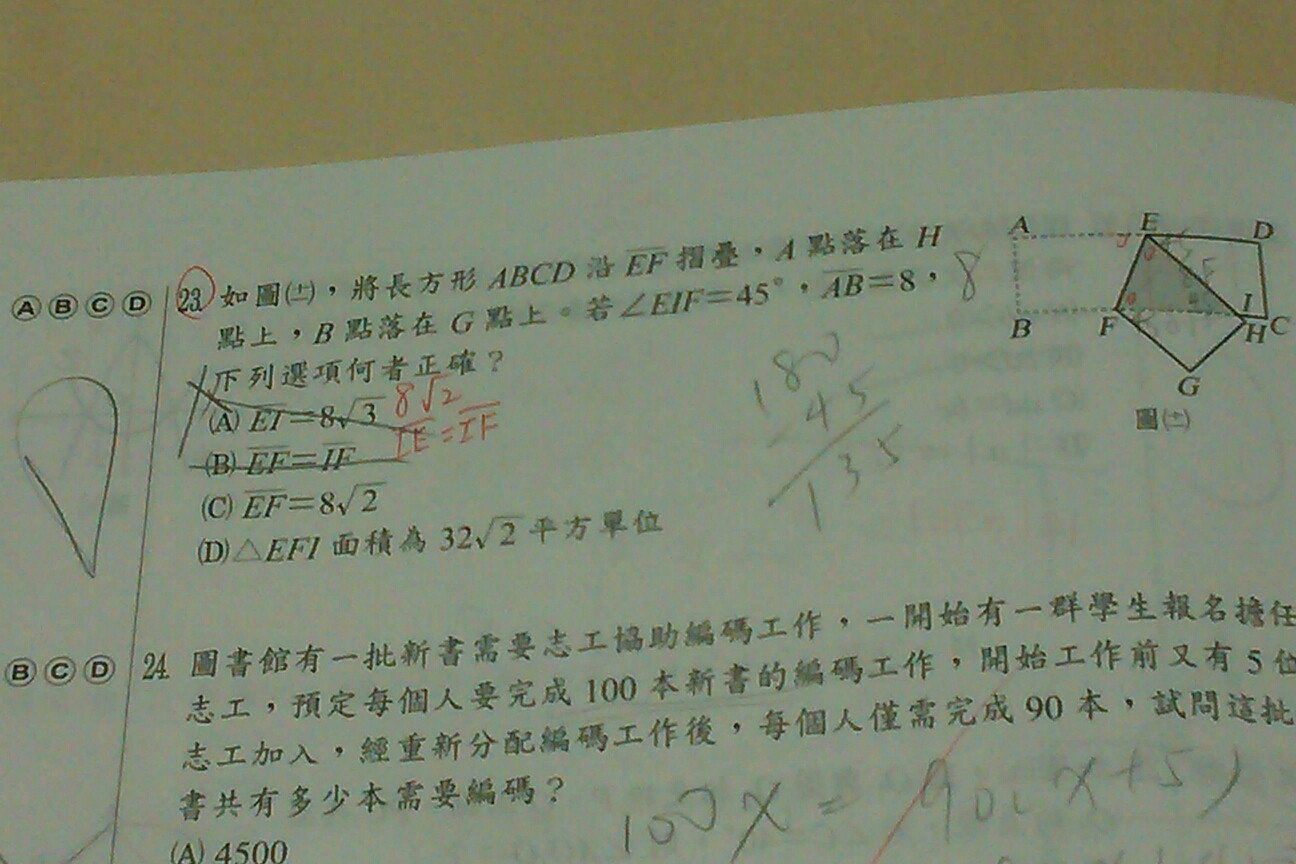 A E D
Ⓐ Ⓑ Ⓒ Ⓓ 23. 如圖(十二)，將長方形 ABCD 沿 EF 摺疊，A 點落在 H
點上，B 點落在 G 點上。若∠EIF=45°，AB=8， 8
B F I H C
G
圖(十二)
下列選項何者正確？
(A) EI=8√3 8√2
IE=IF
(B) EF=IF
(C) EF=8√2
(D) △EFI 面積為 32√2 平方單位
180
- 45
135
Ⓑ Ⓒ Ⓓ 24. 圖書館有一批新書需要志工協助編碼工作，一開始有一群學生報名擔任
志工，預定每個人要完成 100 本新書的編碼工作，開始工作前又有 5 位
志工加入，經重新分配編碼工作後，每個人僅需完成 90 本，試問這批
書共有多少本需要編碼？
100x = 90(x+5)
(A) 4500